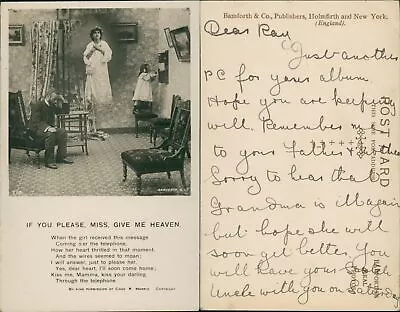 BAMFORTH
IF YOU PLEASE, MISS, GIVE ME HEAVEN.
When the girl received this message
Coming o'er the telephone,
How her heart thrilled in that moment,
And the wires seemed to moan;
I will answer, just to please her,
Yes, dear heart, I'll soon come home;
Kiss me, Mamma, kiss your darling,
Through the telephone.
BY KIND PERMISSION OF CHAS K. HARRIS COPYRIGHT
Bamforth & Co., Publishers, Holmfirth and New York.
(England).
Dear Ray
Just another
PC for your album
Hope you are keeping
well. Remember me
to your Father & Mother
Sorry to hear that
Grandma is ill again
but hope she will
soon get better. You
will have your
Uncle with you on Saturday
POST CARD